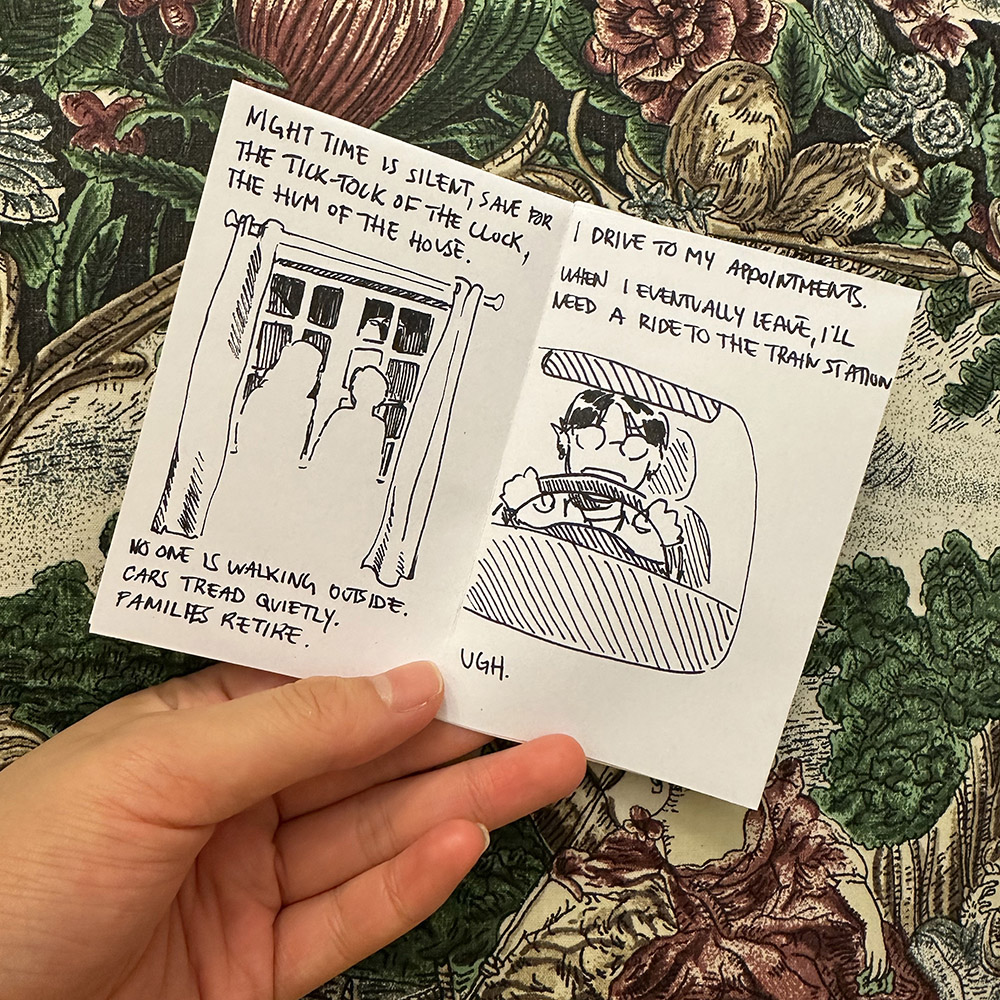 NIGHT TIME IS SILENT, SAVE FOR
THE TICK-TOCK OF THE CLOCK,
THE HUM OF THE HOUSE.
NO ONE IS WALKING OUTSIDE.
CARS TREAD QUIETLY.
FAMILIES RETIRE.
I DRIVE TO MY APPOINTMENTS.
WHEN I EVENTUALLY LEAVE, I'LL
NEED A RIDE TO THE TRAIN STATION
UGH.